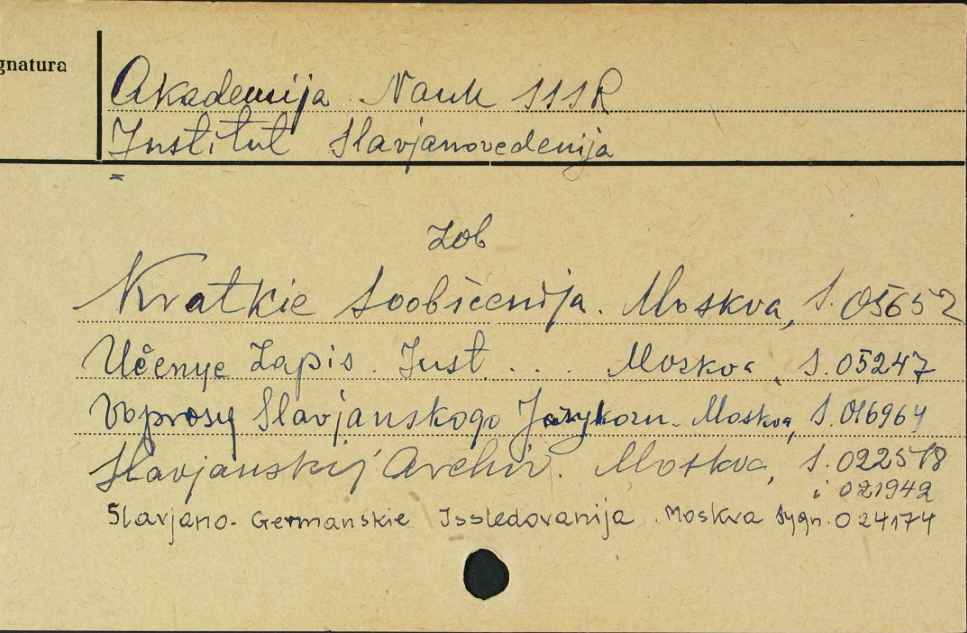 gnatura
Akademija Nauk SSSR
Institut Slavjanovedenija
Zob
Kratkie Soobščenija. Moskva, S. 05652
Učenye Zapis. Inst. ... Moskva, S. 05247
Voprosy Slavjanskogo Jazykozn. Moskva, S. 016964
Slavjanskij Archiv. Moskva, S. 022518
i 021942
Slavjano-Germanskie Issledovanija. Moskva Sygn. 024174